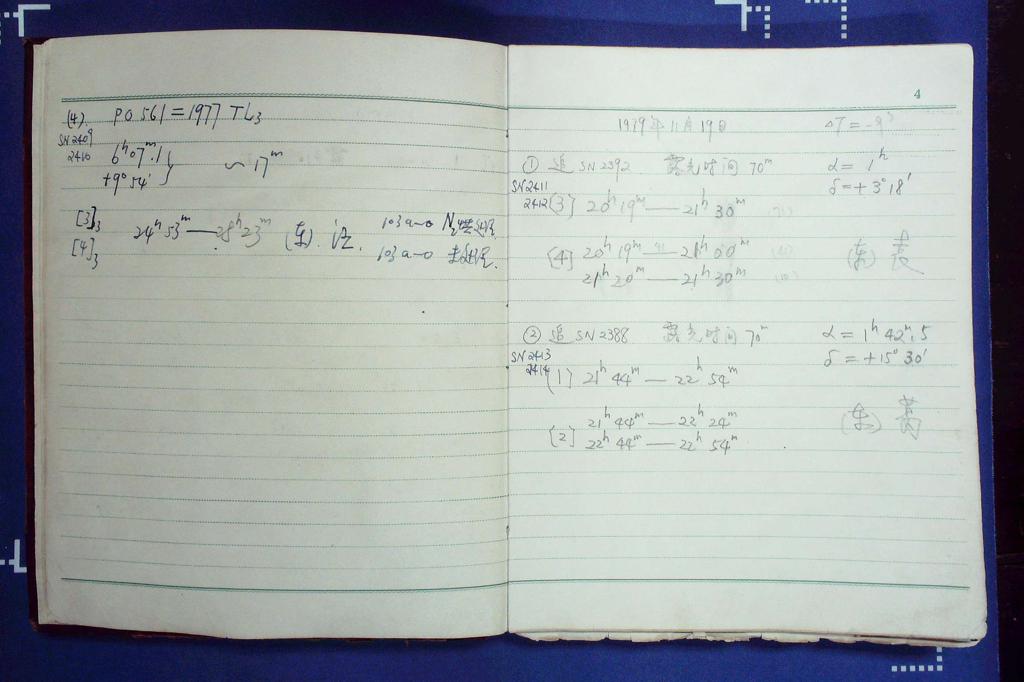 (4). PO 561 = 1977 TL3
SN 2409
2410
6h 07m.1
+9° 54'
~ 17m
[3]3
[4]3
24h 53m — 28h 23m (东).
103a-O N2
103a-O
4
1979年11月19日 ΔT = -9s
① 追 SN 2392 露光时间 70m α = 1h
δ = +3° 18'
SN 2411
2412
[3] 20h 19m — 21h 30m
[4] 20h 19m — 21h 00m (东)
21h 20m — 21h 30m
② 追 SN 2388 露光时间 70m α = 1h 42m.5
δ = +15° 30'
SN 2413
2414
[1] 21h 44m — 22h 54m
21h 44m — 22h 24m (东)
[2] 22h 44m — 22h 54m